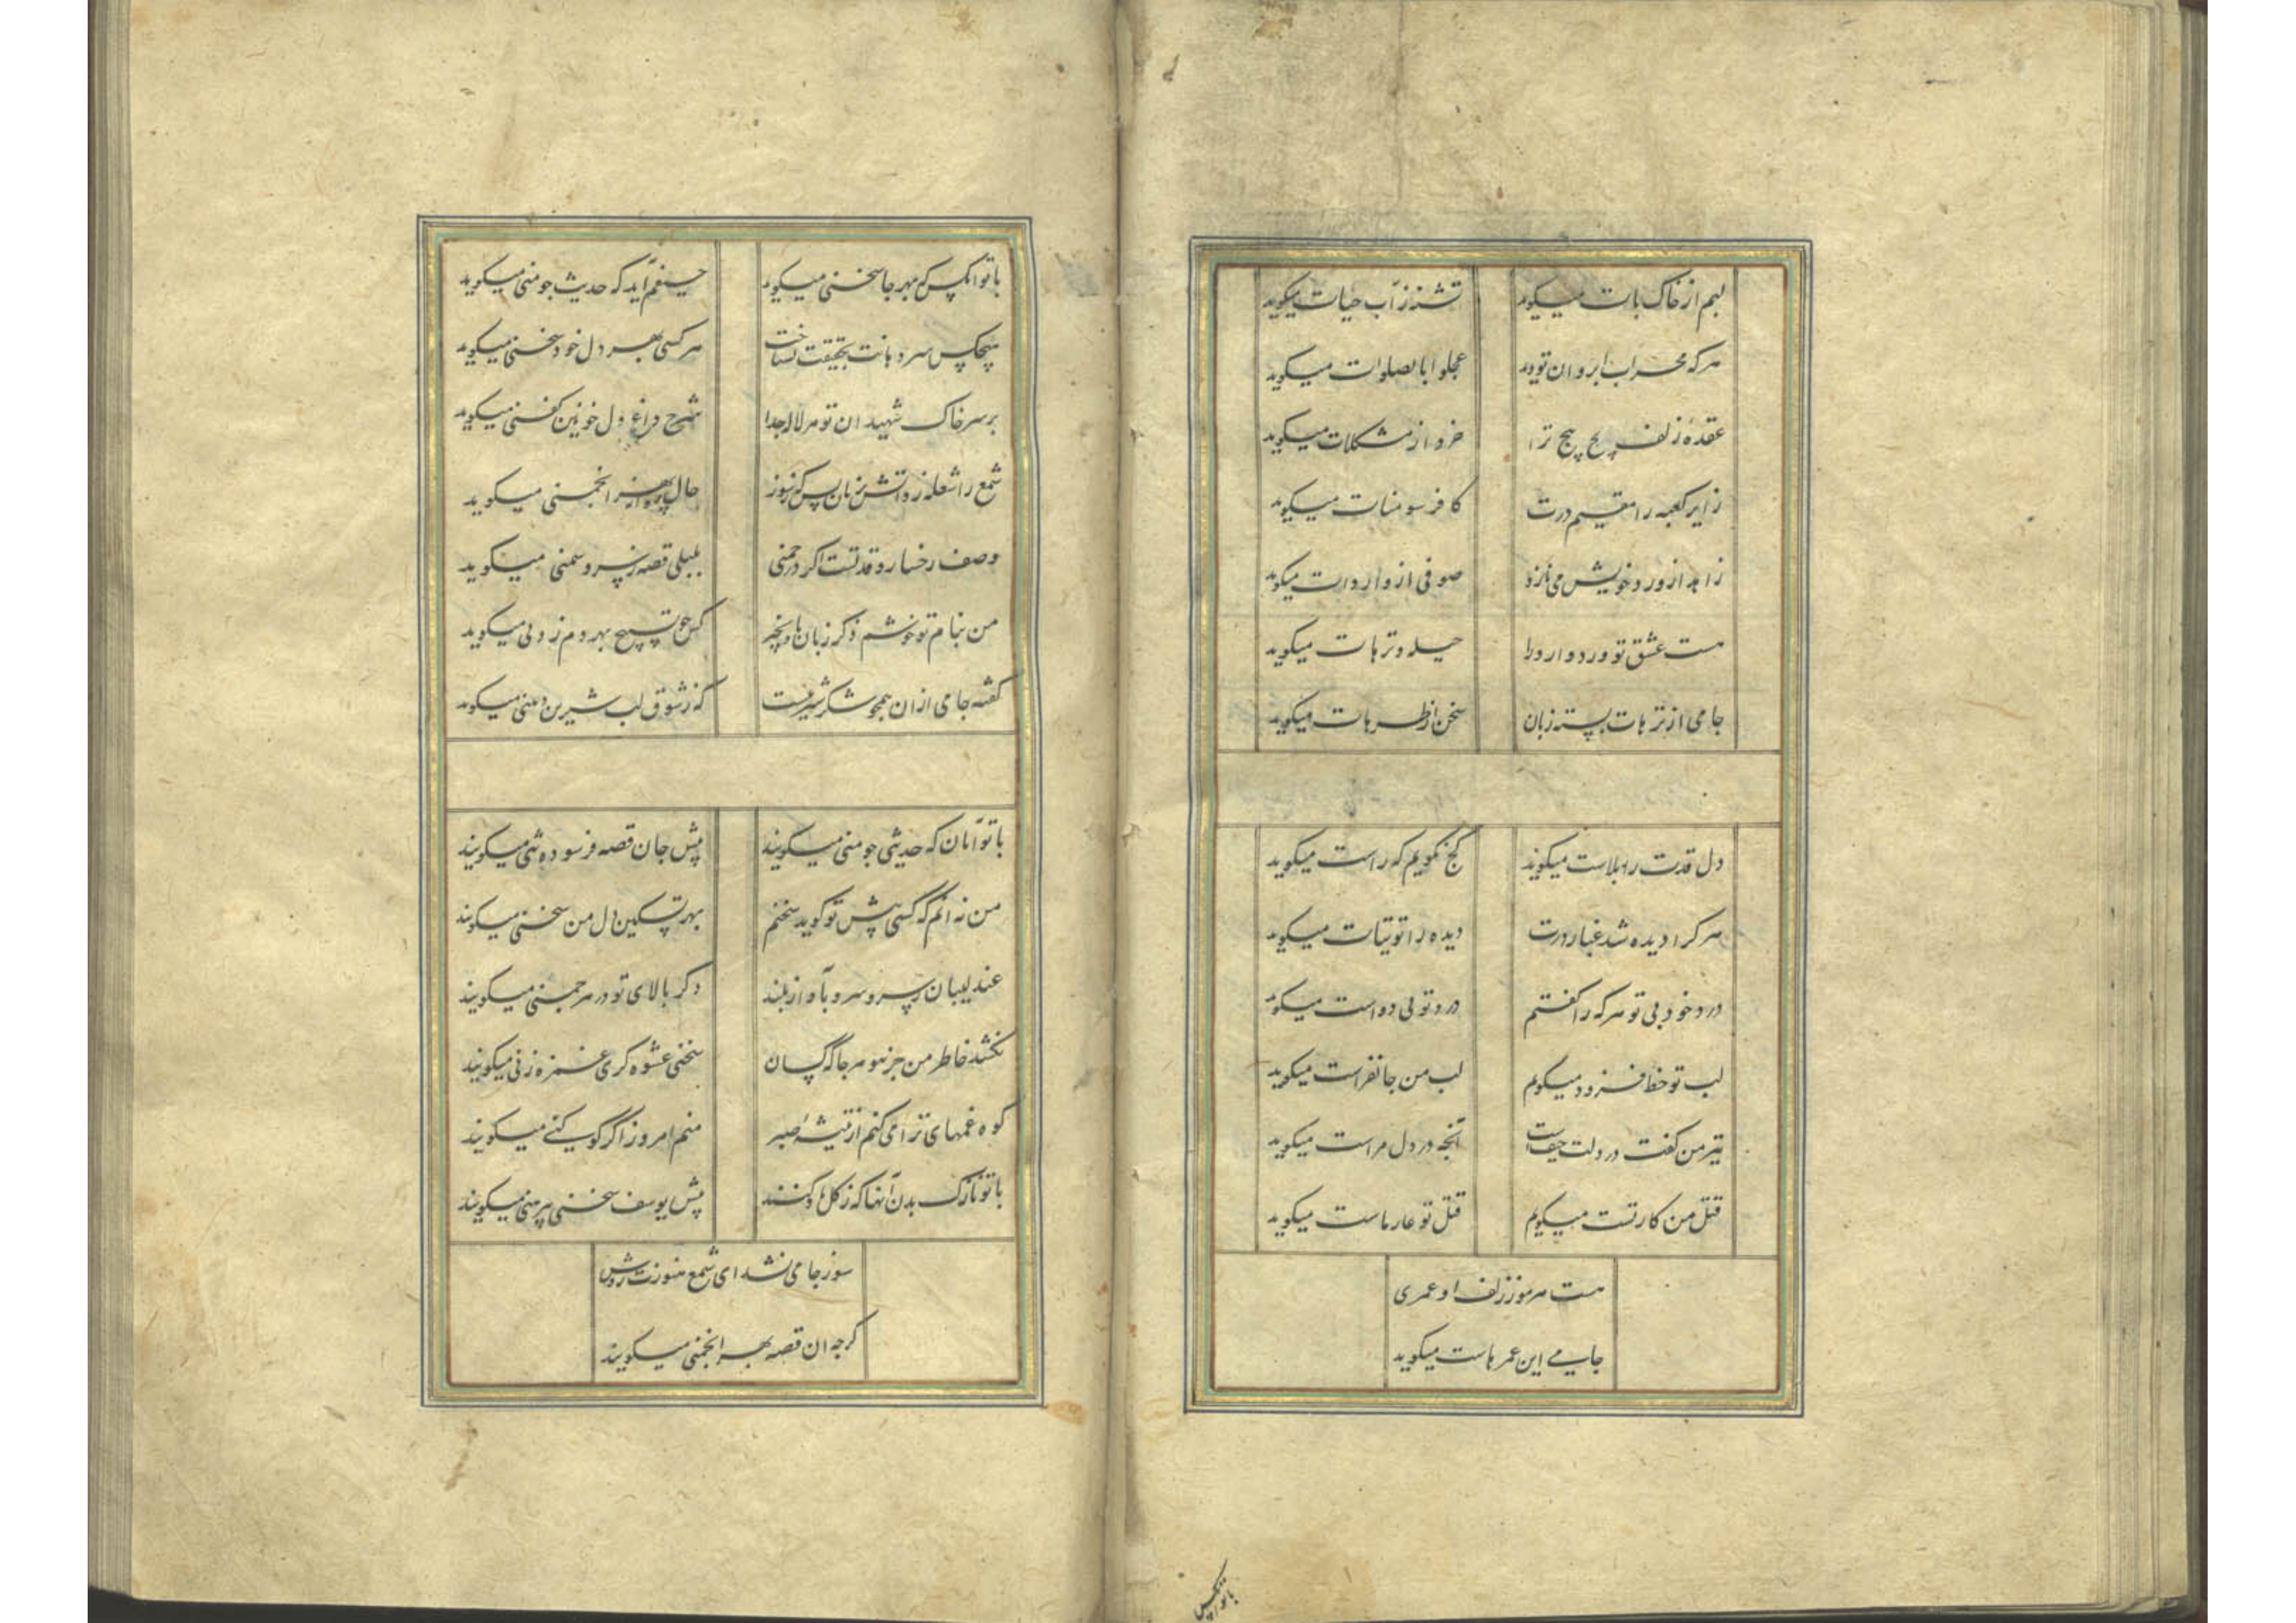 لبم از خاک پات میگوید تشنه ز آب حیات میگوید
هر که محراب ابروان تو دید عجلوا بالصلوات میگوید
عقدهٔ زلف پیچ پیچ ترا خرد از مشکلات میگوید
زایر کعبه را مقیم درت کافر سومنات میگوید
زاهد از ورد خویش می نازد صوفی از واردات میگوید
مست عشق تو ورد و وارد را حیله و ترهات میگوید
جامی از ترهات بسته زبان سخن از طرهات میگوید
دل قدت را بلاست میگوید کج نگویم که راست میگوید
هر کرا دیده شد غبار درت دیده را توتیات میگوید
درد خود بی تو هر که را گفتم درد تو بی دواست میگوید
لب تو خط فزود میگویم لب من جانفزاست میگوید
تیر من گفت در دلت چه خفاست آنچه در دل مراست میگوید
قتل من کار تست میگویم قتل تو عار ماست میگوید
هست هر مو ز زلف او عمری
جامی این عمرهاست میگوید
با تو آنکس
با تو آنکس که بهر جا سخنی میگوید حیفم آید که حدیث چو منی میگوید
هیچکس سر دهانت بحقیقت نشناخت هر کسی بهر دل خود سخنی میگوید
بر سر خاک شهیدان تو هر لاله جدا شرح داغ دل خونین کفنی میگوید
شمع را شعله زد آتش بزبان بس که ز سوز حال پروانه بهر انجمنی میگوید
وصف رخسار و قد تست اگر در چمنی بلبلی قصه ز نسرو سمنی میگوید
من بنام تو خوشم ذکر زبان ها و نچه کس چو تسبیح بهر دم زدنی میگوید
گفته جامی از آن همچو شکر شیرینست که ز شوق لب شیرین دهنی میگوید
با تو آنان که حدیثی چو منی میگویند پیش جان قصه فرسوده تنی میگویند
من نه آنم که کسی پیش تو گوید سخنم بهر تسکین دل من سخنی میگویند
عندلیبان بسر سرو بآواز بلند ذکر بالای تو در هر چمنی میگویند
نکشد خاطر من جز بتو هر جا که کسان سخنی عشوه گری غمزه زنی میگویند
کوه غمهای ترا می کنم از تیشهٔ صبر منم امروز اگر کوه کنی میگویند
با تو نازک بدن آنها که ز گل یاد کنند پیش یوسف سخنی پیرهنی میگویند
سوز جامی نشد ای شمع هنوزت روشن
گرچه آن قصه بهر انجمنی میگویند